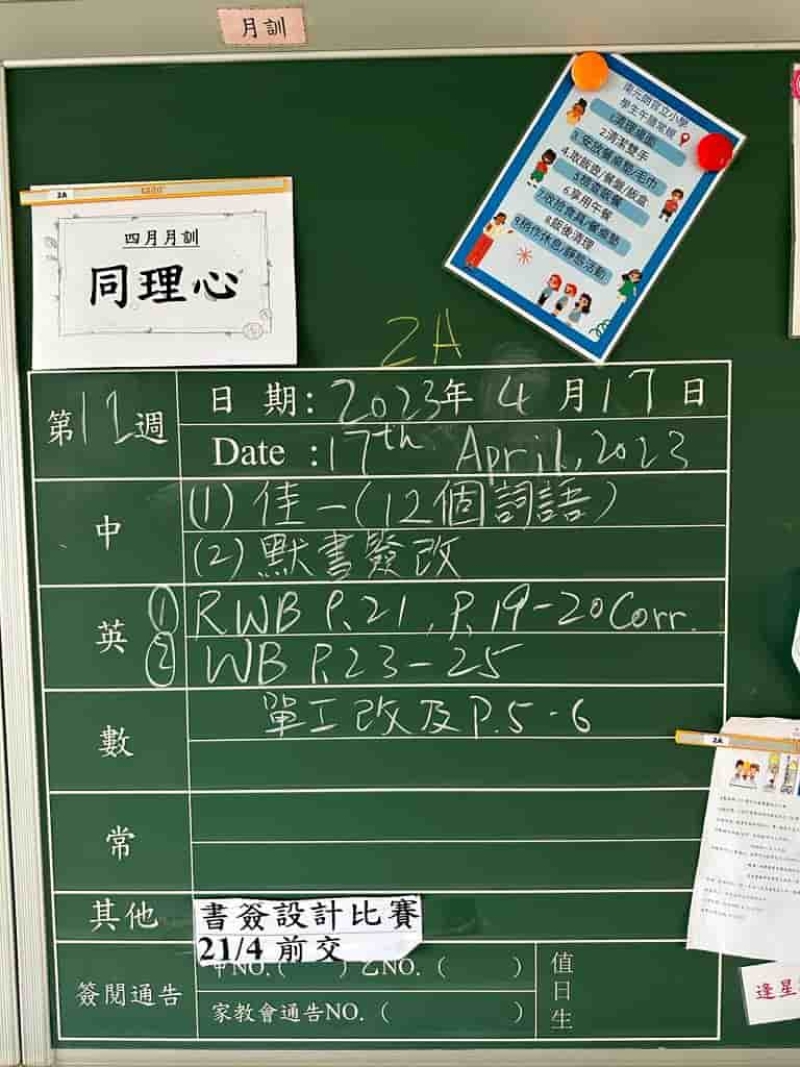 月訓
南元朗官立小學
學生午膳常規
1.清理桌面
2.清潔雙手
3.安放餐桌墊/毛巾
4.取飯壺/餐盤/飯盒
6.享用午餐
7.收拾食具/餐桌墊
8.飯後清理
9.稍作休息/靜態活動
2A
四月月訓
同理心
2A
第12週
日 期: 2023年 4 月17日
Date :17th April, 2023
中
(1) 佳一(12個詞語)
(2) 默書簽改
英
① RWB P.21, P.19-20 Corr.
② WB P.23-25
數
單工改及P.5-6
常
其他
書簽設計比賽
21/4 前交
甲NO.( ) 乙NO. ( )
簽閱通告
家教會通告NO. ( )
值日生
2A
逢星